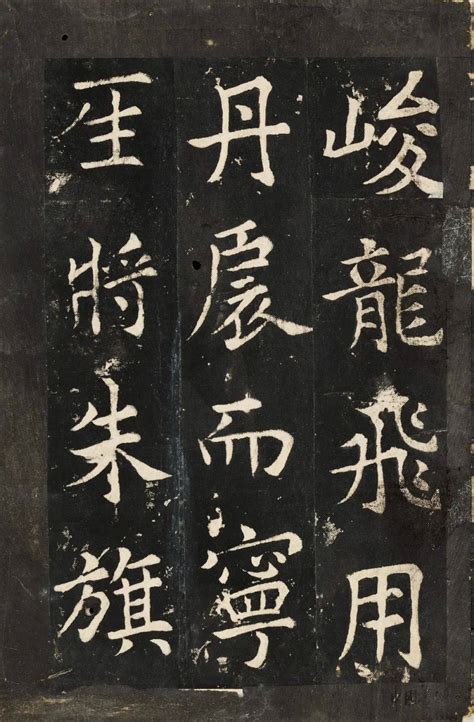 峻龍飛用
丹扆而寧
𤯔將朱旗